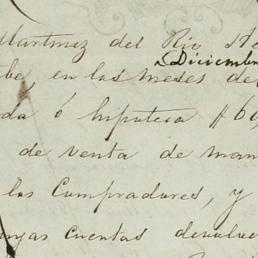 Martinez del Rio He
Diciembre
be, en los meses de
da ó hipoteca $60,
de venta de man
los Compradores, y
uyas cuentas devolue